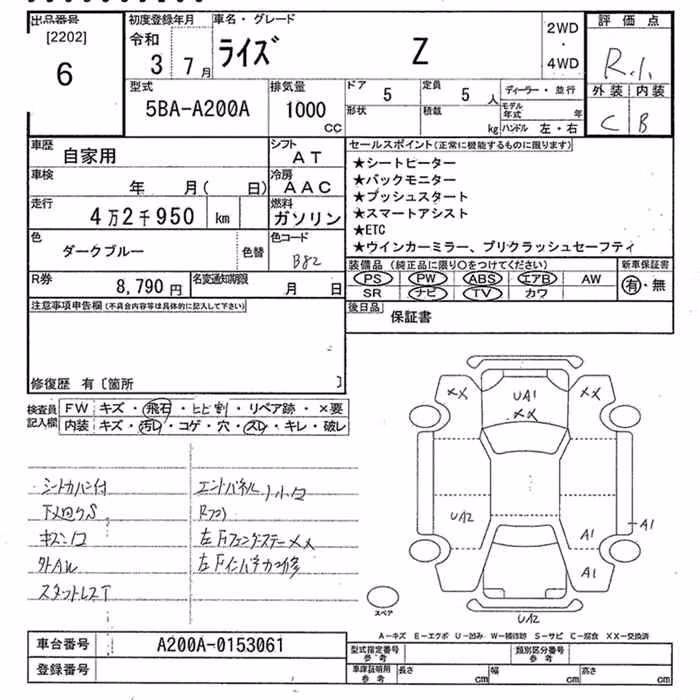 出品番号
[2202]
6
初度登録年月
令和
3 7月
車名・グレード
ライズ Z
2WD
・
4WD
評価点
R.1.
外装 内装
C B
型式
5BA-A200A
排気量
1000
CC
ドア 5
定員 5 人
形状
積載 kg
ディーラー・並行
モデル年式 年
ハンドル 左・右
車歴
自家用
シフト
AT
車検
年 月( 日)
冷房
AAC
走行
4万2千950 km
燃料
ガソリン
色
ダークブルー
色替
色コード
B82
R券
8,790円
名変通知期限
月 日
セールスポイント(正常に機能するものに限ります)
★シートヒーター
★バックモニター
★プッシュスタート
★スマートアシスト
★ETC
★ウインカーミラー、プリクラッシュセーフティ
装備品(純正品に限り○をつけてください)
PS PW ABS エアB AW
SR ナビ TV カワ
新車保証書
有・無
後日品
保証書
注意事項申告欄(不具合内容等は具体的に記入して下さい)
修復歴 有〔箇所 〕
検査員
記入欄
FW キズ・飛石・ヒビ割・リペア跡・×要
内装 キズ・汚レ・コゲ・穴・スレ・キレ・破レ
シートカバー付
キズ、凹
スタットレスT
XX
UA1
XX
XX
UA2
A1
A1
A1
UA2
スペア
A-キズ E-エクボ U-凹み W-補修跡 S-サビ C-腐食 XX-交換済
車台番号
A200A-0153061
登録番号
型式指定番号
参考
類別区分番号
参考
車庫証明用
参考
長さ cm
幅 cm
高さ cm